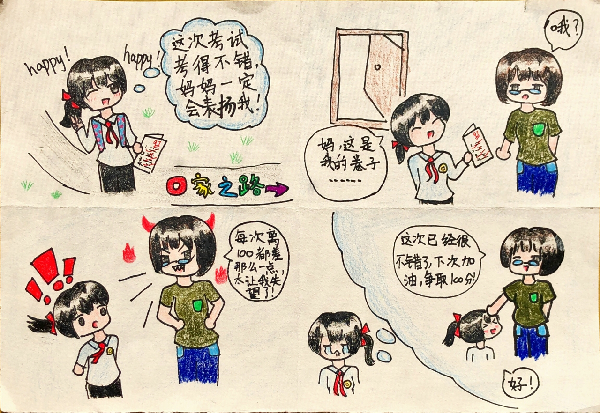 happy!
happy!
这次考试
考得不错,
妈妈一定
会表扬我!
回家之路
哦?
妈,这是
我的卷子
……
!!!
每次离
100都差
那么一点,
太让我失
望了!
这次已经很
不错了,下次加
油,争取100分
好!